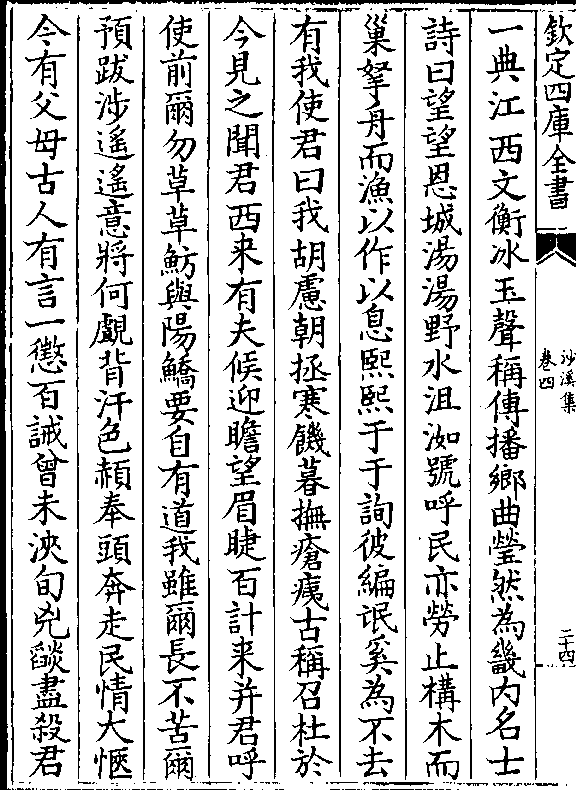 欽定四庫全書
沙溪集
卷四
二十四
一典江西文衡冰玉聲稱傳播鄉曲瑩然為畿内名士
詩曰望望恩城湯湯野水沮洳號呼民亦勞止構木而
巢拏舟而漁以作以息熙熙于于詢彼編氓奚為不去
有我使君曰我胡慮朝拯寒饑暮撫瘡痍古稱召杜於
今見之聞君西来有夫候迎瞻望眉睫百計来并君呼
使前爾勿草草魴與陽鱎要自有道我雖爾長不苦爾
預跋涉遥遥意將何覷背汗色赬奉頭奔走民情大愜
今有父母古人有言一懲百誡曾未浹旬兇燄盡殺君